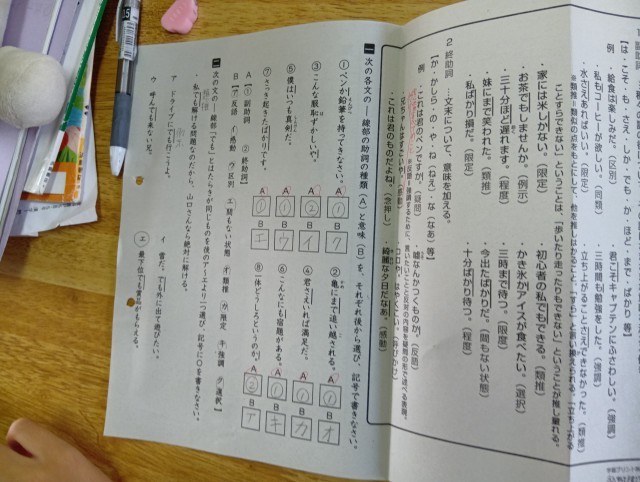 例 給食は楽しみだ。（区別）
・私もコーヒーが欲しい。（同類）
・水さえあればいい。（限定）
・君こそキャプテンにふさわしい。（強調）
・三時間も勉強をした。（強調）
・立ち上がることさえできなかった。（類推）
・家には米しかない。（限定）
・お茶でもしませんか。（例示）
・三十分ほど遅れます。（程度）
・妹にまで笑われた。（類推）
・私ばかり損だ。（限定）
・初心者の私でもできる。（類推）
・かき氷かアイスが食べたい。（選択）
・三時まで待つ。（限度）
・今出たばかりだ。（間もない状態）
・十分ばかり待つ。（程度）
2 終助詞 …文末について、意味を加える。
【か・かしら・の・や・ね（ねえ）・な（なあ）等】
例 ・これは君のペンですか。（疑問）
・嘘なんかつくものか。（反語）
・これは君のものだよね。（念押し）
・綺麗な夕日だなあ。（感動）
一 次の各文の―線部の助詞の種類（A）と意味（B）を、それぞれ後から選び、記号で書きなさい。
①ペンか鉛筆を持ってきなさい。 A ① B エ
②亀にまで追い越される。 A ① B オ
③こんな服恥ずかしいや。 A ② B イ
④君さえいれば満足だ。 A ① B カ
⑤僕はいつも真剣だ。 A ① B ウ
⑥こんなにも宿題がある。 A ① B キ
⑦さっき起きたばかりです。 A ① B エ
⑧一体どうしろというのか。 A ② B ア
A【① 副助詞 ② 終助詞】
B【ア 反語 イ 感動 ウ 区別 エ 間もない状態 オ 類推 カ 限定 キ 強調 ク 選択】
二 次の文の―線部「でも」とはたらきが同じものを後のア～エより一つ選び、記号に○をかきなさい。
私でも解ける問題なのだから、山口さんなら絶対に解ける。
ア ドライブにでも行こうよ。
イ 昔だ。でも外に出て遊びたい。
ウ 呼んでも来ない兄。
エ 最下位でも賞品がもらえる。